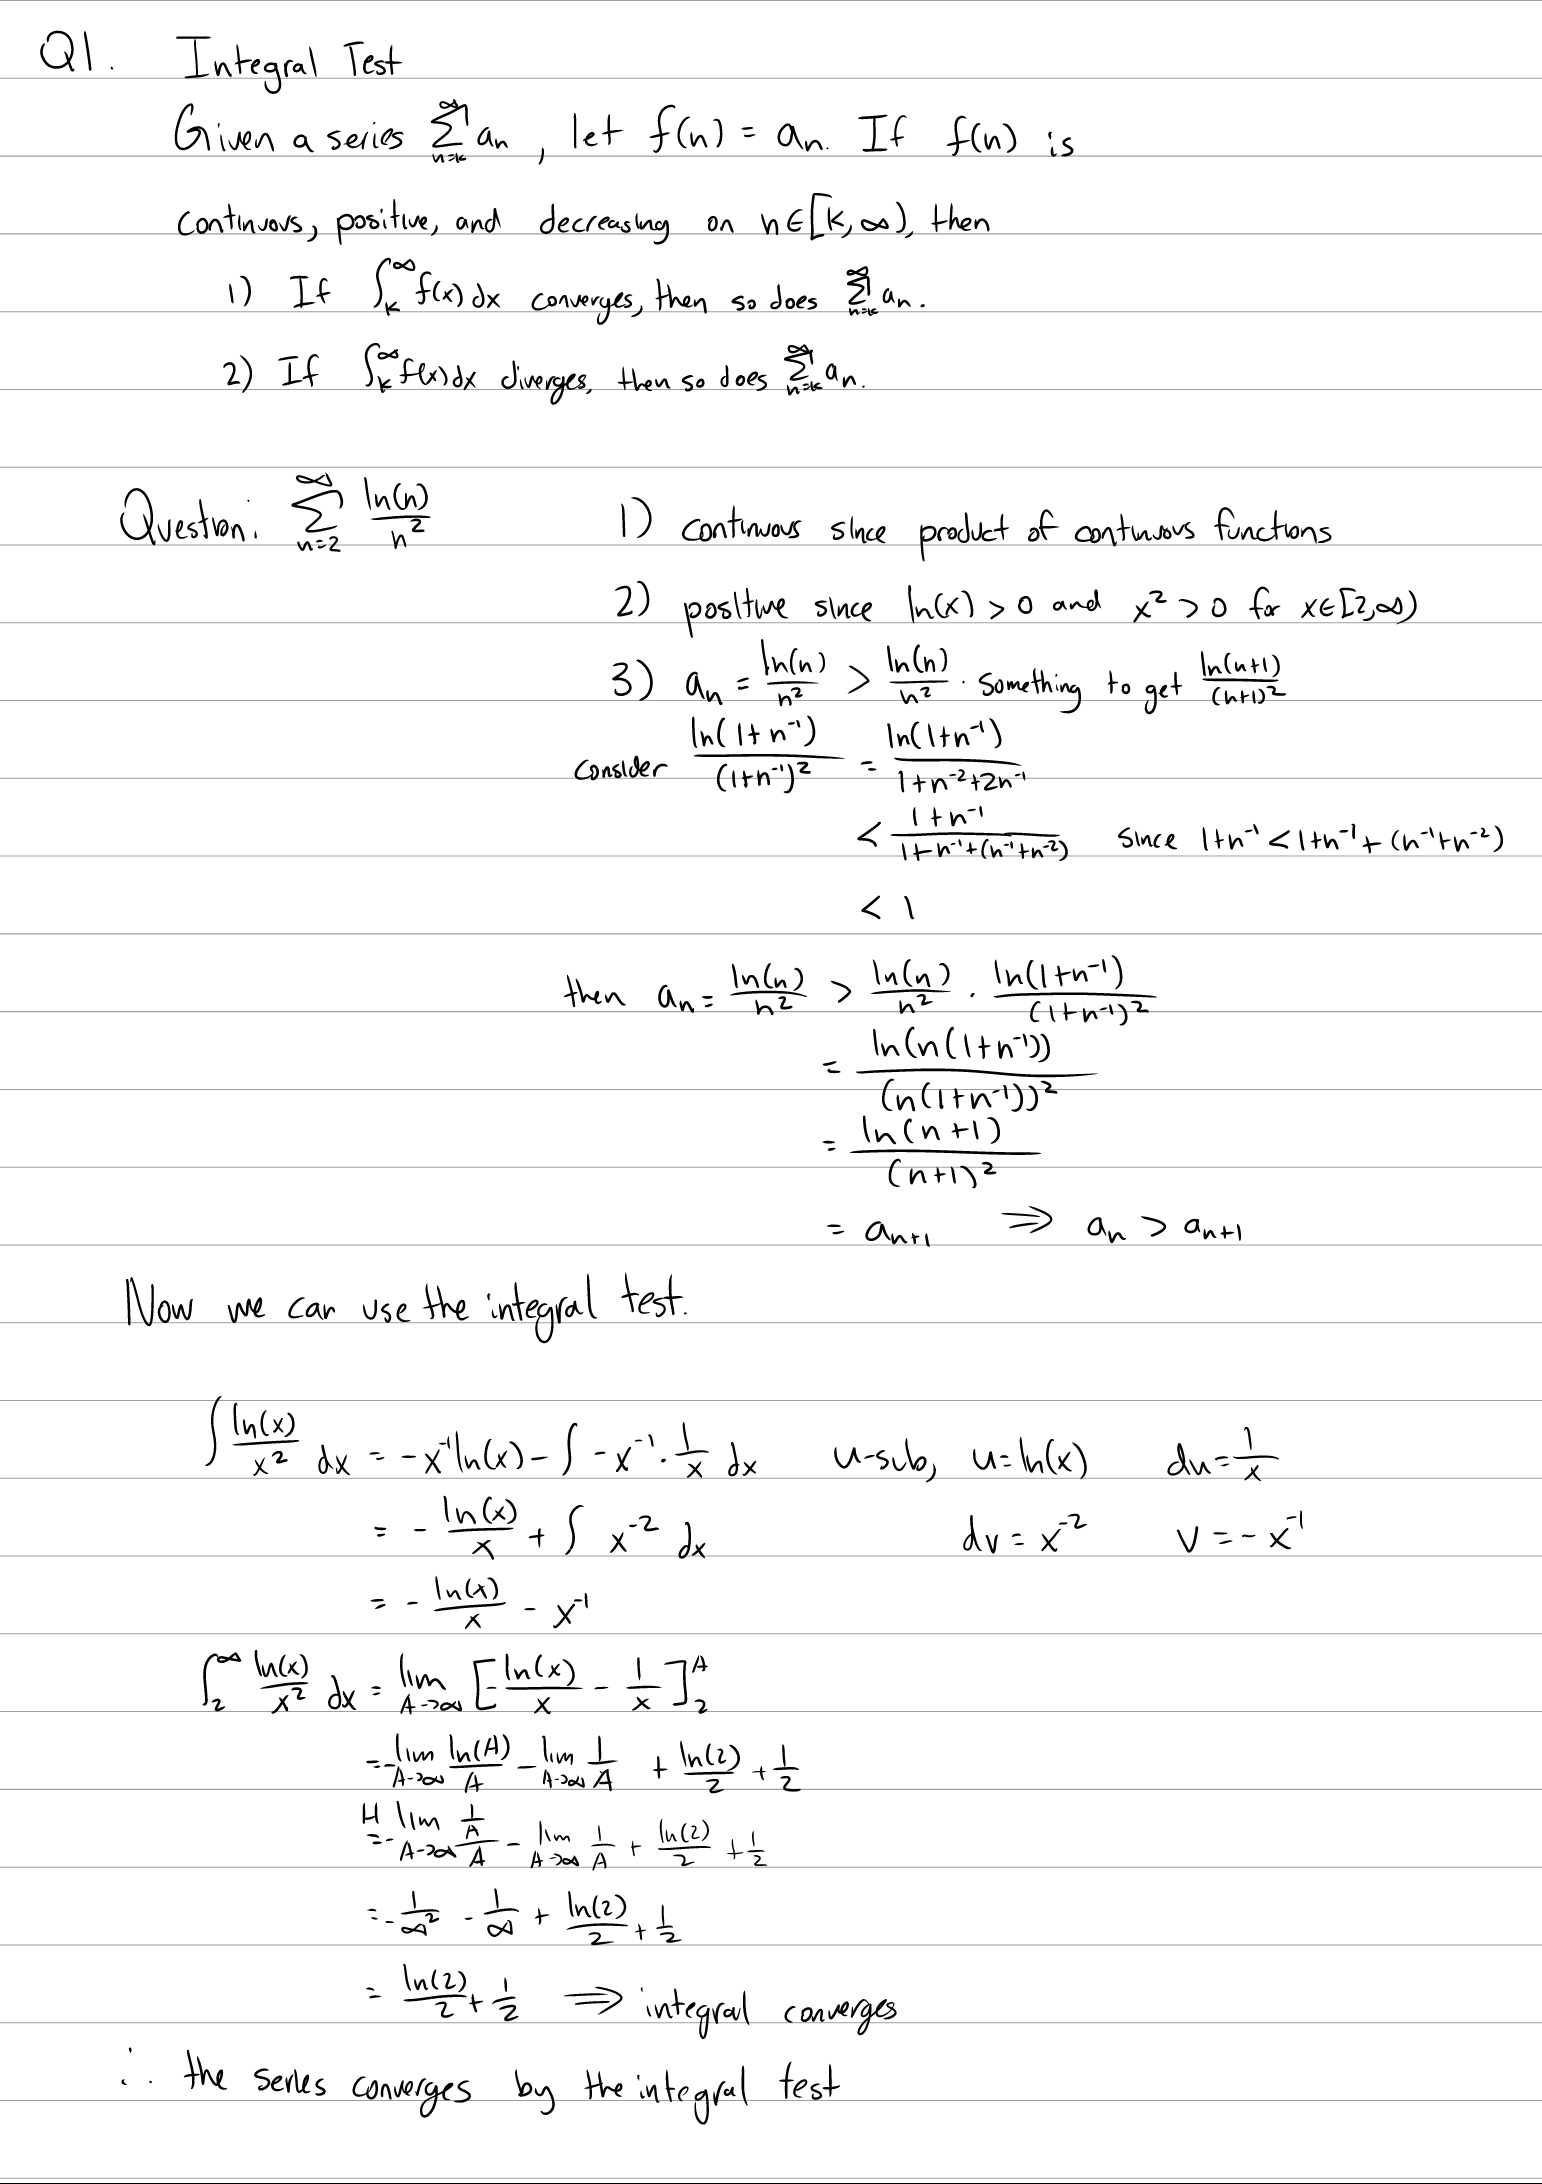 Q1. Integral Test
Given a series $\sum_{n=k}^{\infty} a_n$, let $f(n) = a_n$. If $f(n)$ is
continuous, positive, and decreasing on $n \in [k, \infty)$, then
1) If $\int_k^{\infty} f(x) dx$ converges, then so does $\sum_{n=k}^{\infty} a_n$.
2) If $\int_k^{\infty} f(x) dx$ diverges, then so does $\sum_{n=k}^{\infty} a_n$.
Question: $\sum_{n=2}^{\infty} \frac{\ln(n)}{n^2}$
1) continuous since product of continuous functions
2) positive since $\ln(x) > 0$ and $x^2 > 0$ for $x \in [2, \infty)$
3) $a_n = \frac{\ln(n)}{n^2} > \frac{\ln(n)}{n^2} \cdot$ something to get $\frac{\ln(n+1)}{(n+1)^2}$
consider $\frac{\ln(1+n^{-1})}{(1+n^{-1})^2} = \frac{\ln(1+n^{-1})}{1+n^{-2}+2n^{-1}}$
$< \frac{1+n^{-1}}{1+n^{-1}+(n^{-1}+n^{-2})}$ since $1+n^{-1} < 1+n^{-1}+(n^{-1}+n^{-2})$
$< 1$
then $a_n = \frac{\ln(n)}{n^2} > \frac{\ln(n)}{n^2} \cdot \frac{\ln(1+n^{-1})}{(1+n^{-1})^2}$
$= \frac{\ln(n(1+n^{-1}))}{(n(1+n^{-1}))^2}$
$= \frac{\ln(n+1)}{(n+1)^2}$
$= a_{n+1} \Rightarrow a_n > a_{n+1}$
Now we can use the integral test.
$\int \frac{\ln(x)}{x^2} dx = -x^{-1}\ln(x) - \int -x^{-1} \cdot \frac{1}{x} dx$ u-sub, $u = \ln(x)$ $du = \frac{1}{x}$
$= -\frac{\ln(x)}{x} + \int x^{-2} dx$ $dv = x^{-2}$ $v = -x^{-1}$
$= -\frac{\ln(x)}{x} - x^{-1}$
$\int_2^{\infty} \frac{\ln(x)}{x^2} dx = \lim_{A \to \infty} \left[ -\frac{\ln(x)}{x} - \frac{1}{x} \right]_2^A$
$= -\lim_{A \to \infty} \frac{\ln(A)}{A} - \lim_{A \to \infty} \frac{1}{A} + \frac{\ln(2)}{2} + \frac{1}{2}$
$\overset{H}{=} -\lim_{A \to \infty} \frac{\frac{1}{A}}{A} - \lim_{A \to \infty} \frac{1}{A} + \frac{\ln(2)}{2} + \frac{1}{2}$
$= -\frac{1}{\infty^2} - \frac{1}{\infty} + \frac{\ln(2)}{2} + \frac{1}{2}$
$= \frac{\ln(2)}{2} + \frac{1}{2} \Rightarrow$ integral converges
∴ the series converges by the integral test